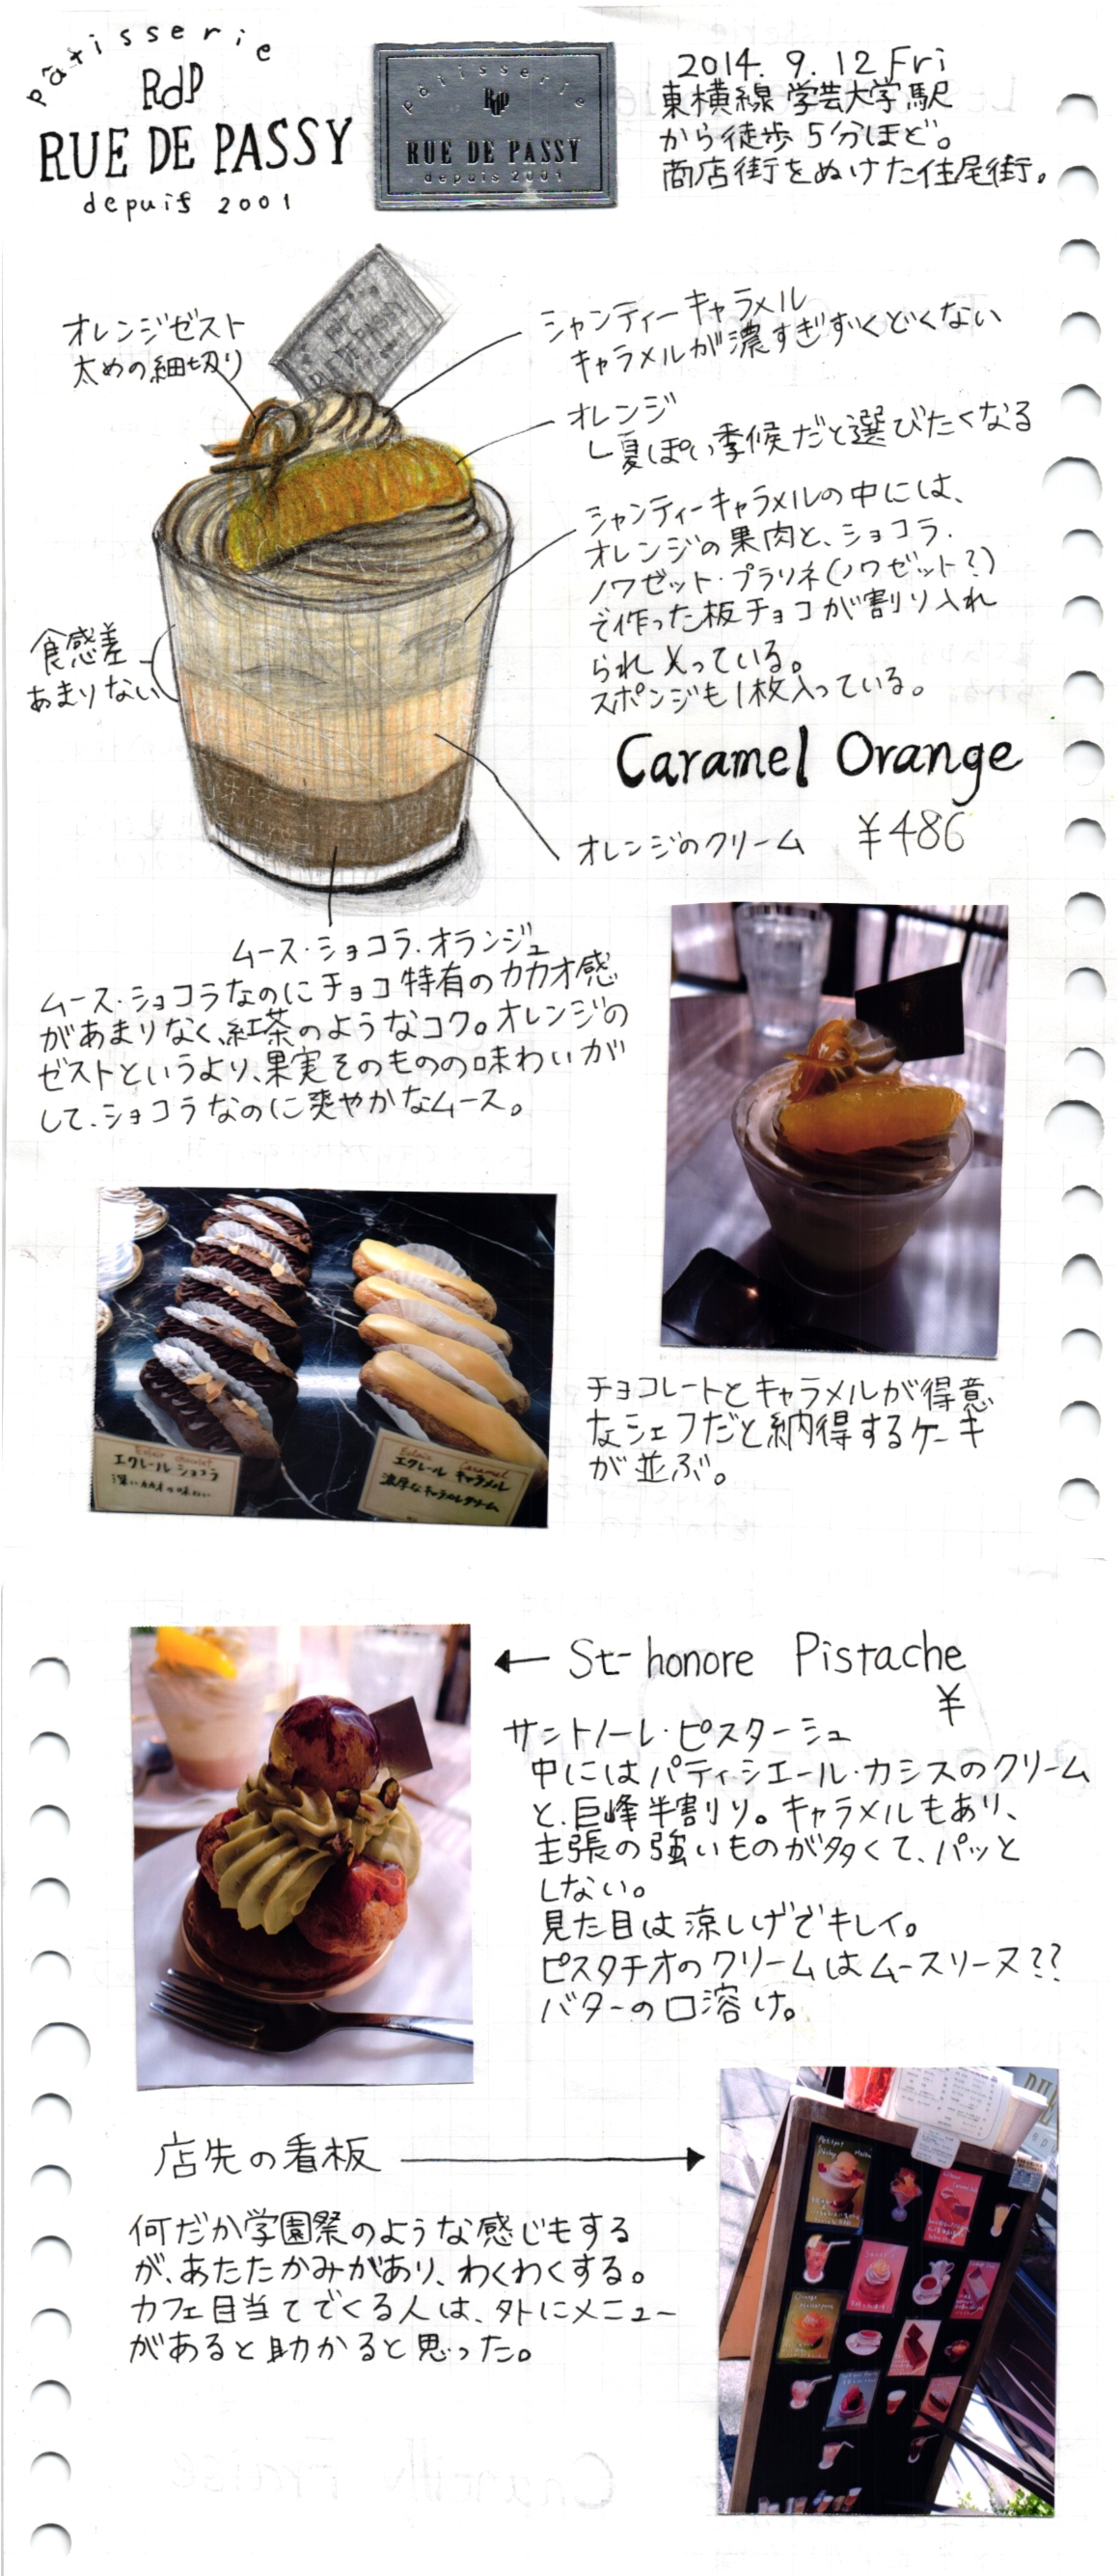 pâtisserie
RdP
RUE DE PASSY
depuis 2001
pâtisserie
RdP
RUE DE PASSY
depuis 2001
2014. 9. 12 Fri
東横線 学芸大学駅
から徒歩 5分ほど。
商店街をぬけた住尾街。
オレンジゼスト
太めの細切り
シャンティーキャラメル
キャラメルが濃すぎずくどくない
オレンジ
し夏ぽい季候だと選びたくなる
シャンティーキャラメルの中には、
オレンジの果肉と、ショコラ・
ノワゼット・プラリネ(ノワゼット?)
で作った板チョコが割り入れ
られ入っている。
スポンジも1枚入っている。
食感差
あまりない
Caramel Orange
¥486
オレンジのクリーム
ムース・ショコラ・オランジュ
ムース・ショコラなのにチョコ特有のカカオ感
があまりなく、紅茶のようなコク。オレンジの
ゼストというより、果実そのものの味わいが
して、ショコラなのに爽やかなムース。
Eclair chocolat
エクレール ショコラ
深いカカオの味わい
Eclair Caramel
エクレール キャラメル
濃厚なキャラメルクリーム
チョコレートとキャラメルが得意
なシェフだと納得するケーキ
が並ぶ。
← St-honore Pistache
¥
サントノーレ・ピスターシュ
中にはパティシエール・カシスのクリーム
と、巨峰半割り。キャラメルもあり、
主張の強いものが多くて、パッと
しない。
見た目は涼しげでキレイ。
ピスタチオのクリームはムースリーヌ??
バターの口溶け。
店先の看板
何だか学園祭のような感じもする
が、あたたかみがあり、わくわくする。
カフェ目当てでくる人は、外にメニュー
があると助かると思った。